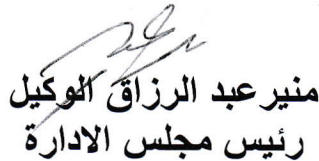 منير عبد الرزاق الوكيل
رئيس مجلس الادارة